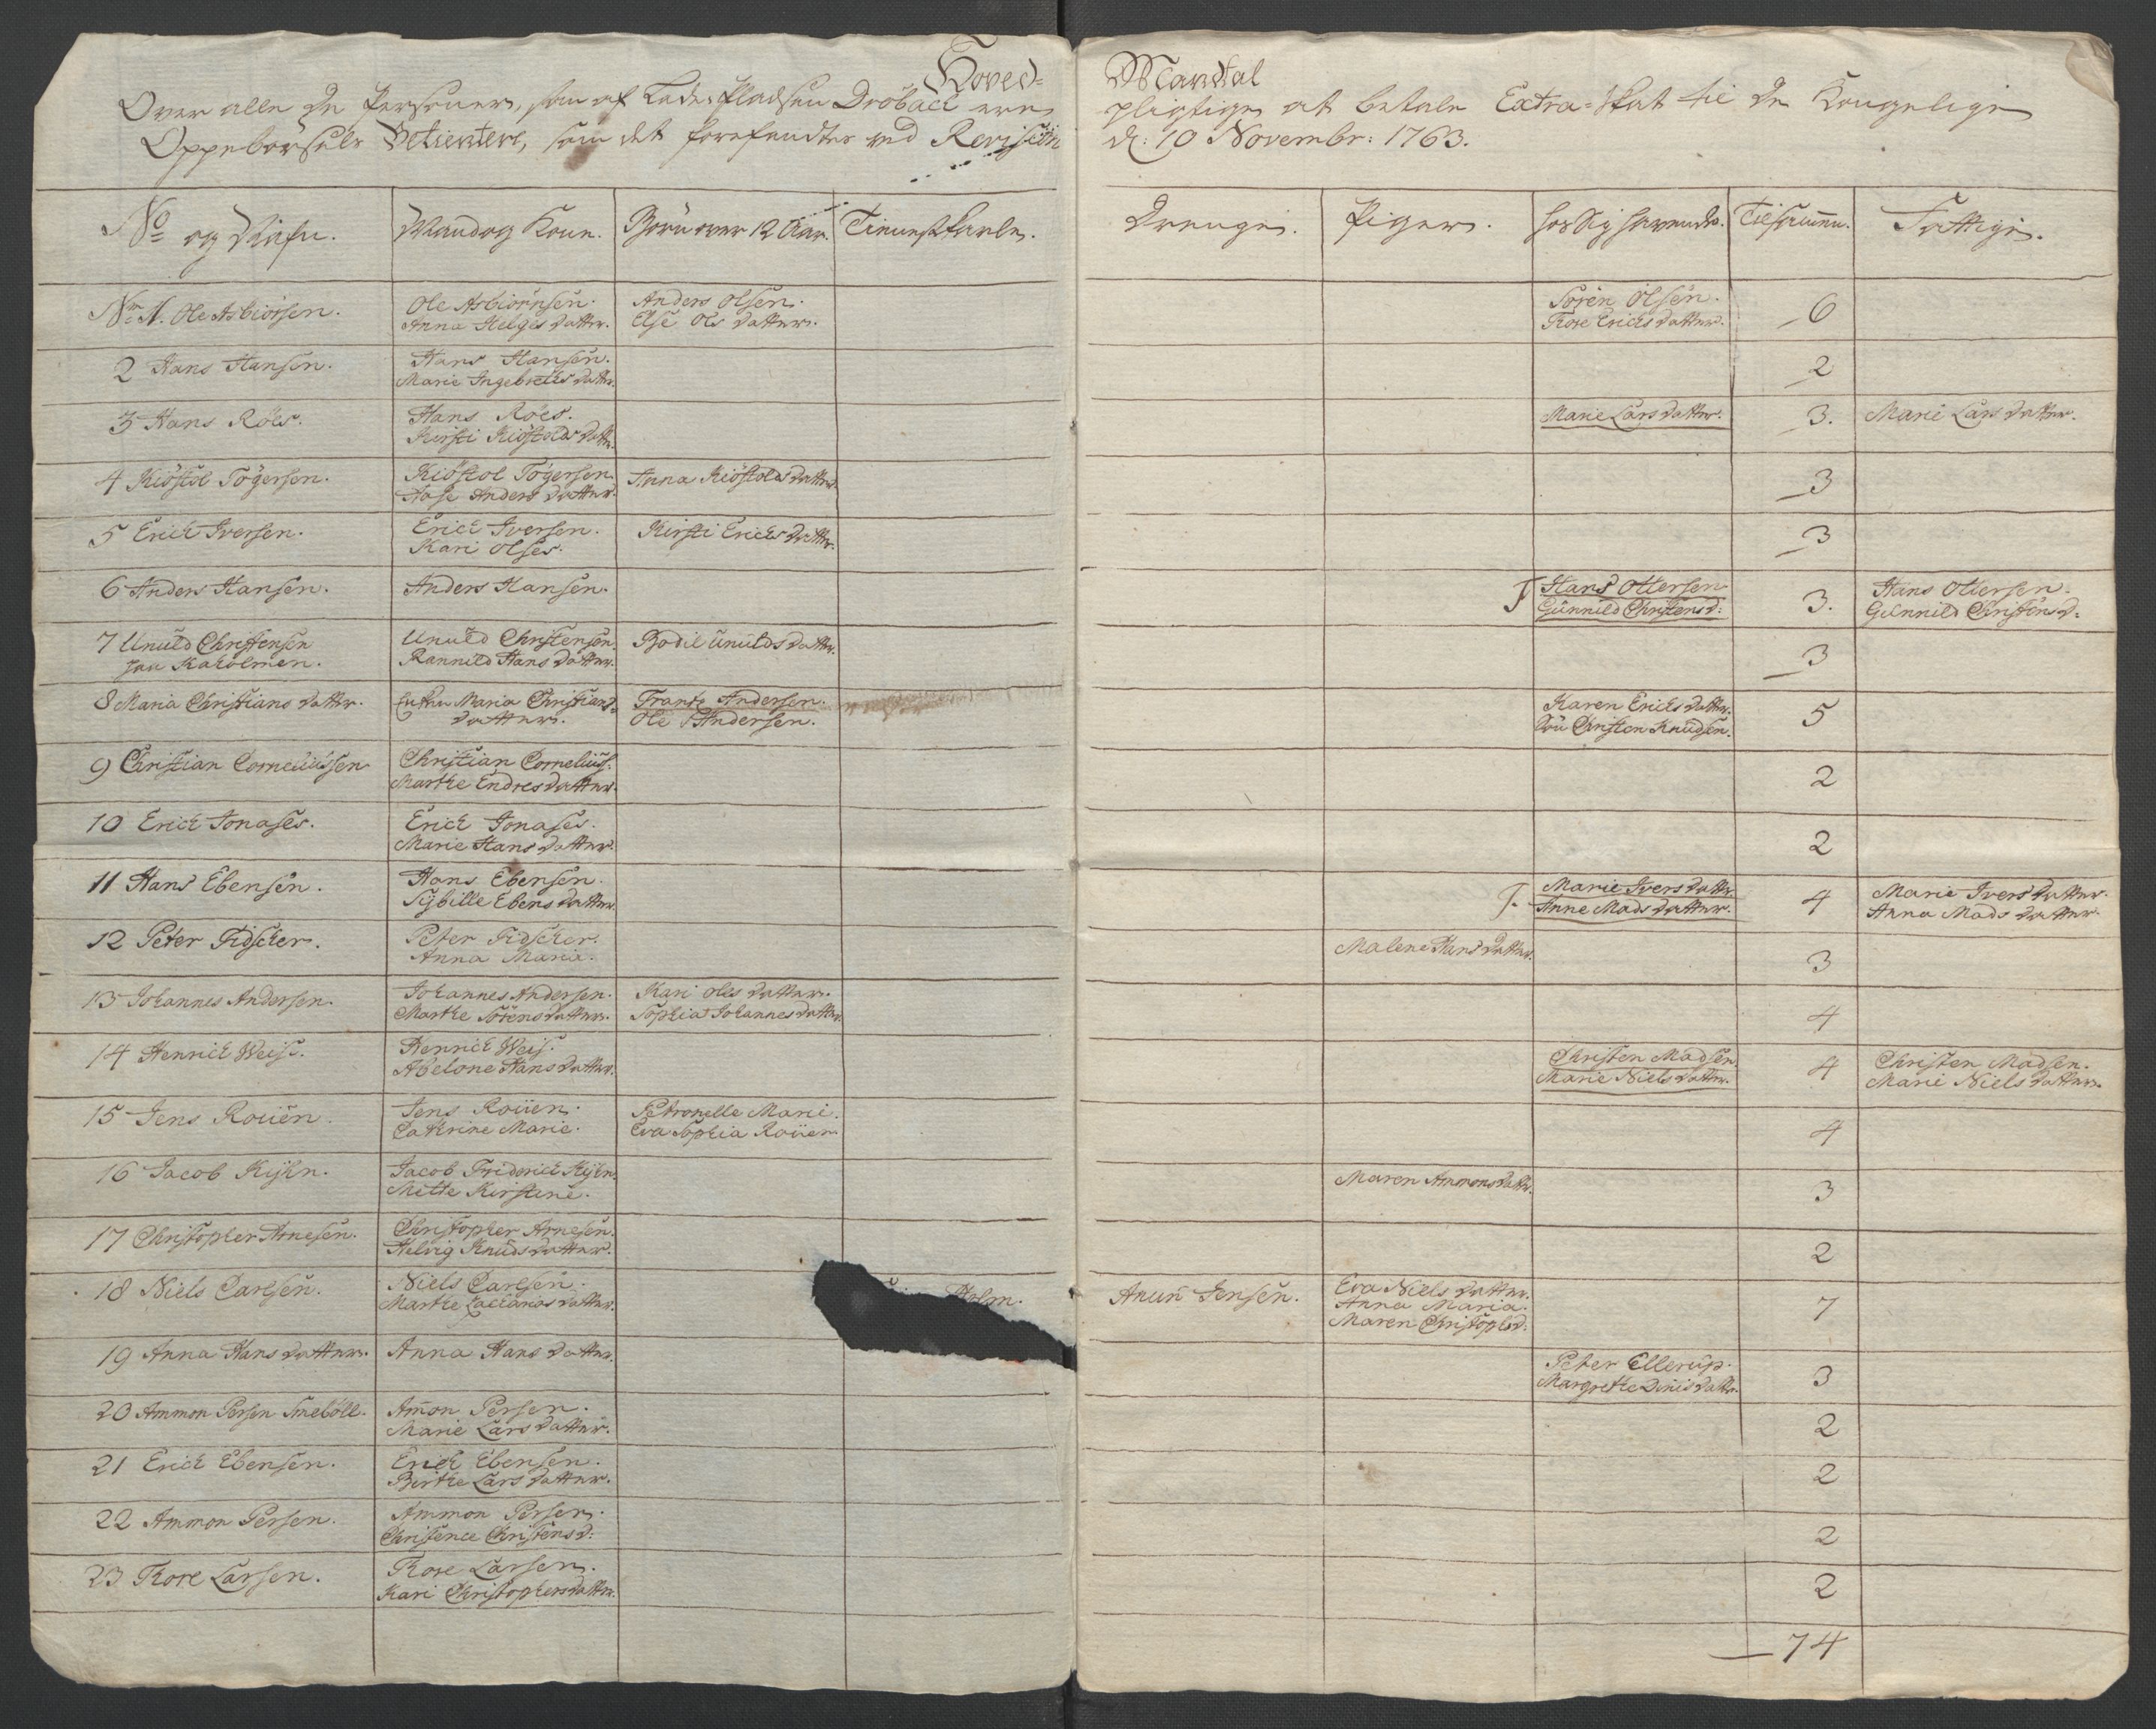 Hoved=
Over alle de Personer, som af Lade-Pladsen Dröback ere
Oppebörsels Betientere, som det forefandtes ved Revision
Mandtal
pligtige at betale Extra-Skat til de Kongelige
d: 10 Novembr: 1763.
No og Nafn. Mand og Kone. Börn over 12 Aar. Tienest Karle. Drenge. Piger. hos sig havende. Tilsammen. Fattige.
No 1. Ole Asbiörsen. Ole Asbiörnsen. Anders Olsen. Sören Olsen. 6
Anna Helges Datter. Else Ols Datter. Kore Erichs Datter.
2 Hans Hansen. Hans Hansen. 2
Marie Ingebrets Datter.
3 Hans Röes. Hans Röes. Marie Lars Datter. 3. Marie Lars Datter.
Kirsti Kiöstolds Datter.
4 Kiöstol Tögersen. Kiöstol Tögersen. Anna Kiöstolds Datter. 3
Aase Anders Datter.
5 Erich Iversen. Erich Iversen. Kirsti Erichs Datter. 3
Kari Olses.
6 Anders Hansen. Anders Hansen. Hans Ottersen 3. Hans Ottersen.
Günnild Christens D: Günnild Christens D:
7 Unuld Christensen Unuld Christensen. Bodil Unulds Datter. 3
paa Kaholmen. Rannild Hans Datter.
8 Maria Christians Datter. Enken Maria Christians= Frantz Andersen. Karen Erichs Datter. 5
Datter. Ole Andersen. Christen Knudsen.
9 Christian Corneliussen Christian Cornelius: 2
Marthe Endres Datter.
10 Erich Jonases. Erich Jonases. 2
Marie Hans Datter.
11 Hans Ebensen. Hans Ebensen. Marie Ivers Datter 4 Marie Ivers Datter.
Sÿbille Ebens Datter. Anne Mads Datter. Anna Mads Datter.
12 Peter Fidscher. Peter Fidscher. Malene Hans Datter. 3
Anna Maria.
13 Johannes Andersen. Johannes Andersen. Kari Oles Datter. 4
Marthe Sörens Datter. Sophia Johannes Datter.
14 Henrich Weis. Henrich Weis. Christen Madsen 4 Christen Madsen.
Abelone Hans Datter. Marie Niels Datter. Marie Niels Datter.
15 Jens Roüen. Jens Roüen. Petronelle Marie. 4
Cathrine Marie. Eva Sophia Roüen.
16 Jacob Kÿhn. Jacob Friderich Kÿhn. Maren Ammons Datter. 3
Mette Kirstine.
17 Christopher Arnesen. Christopher Arnesen. 2
Helvig Knuds Datter.
18 Niels Carlsen. Niels Carlsen. Holm. Anun Jensen. Eva Niels Datter. 7
Marthe Zacharias Datter. Anna Maria.
Maren Christophs D:
19 Anna Hans Datter. Anna Hans Datter. Peter Ellerup. 3
Margrethe Dinis Datter.
20 Ammon Persen Smeböll. Amon Persen. 2
Marie Lars Datter.
21 Erich Ebensen. Erich Ebensen. 2
Birthe Lars Datter.
22 Ammon Persen. Ammon Persen. 2
Christence Christens D:
23 Kore Larsen. Kore Larsen. 2
Kari Christophers Datter.
74